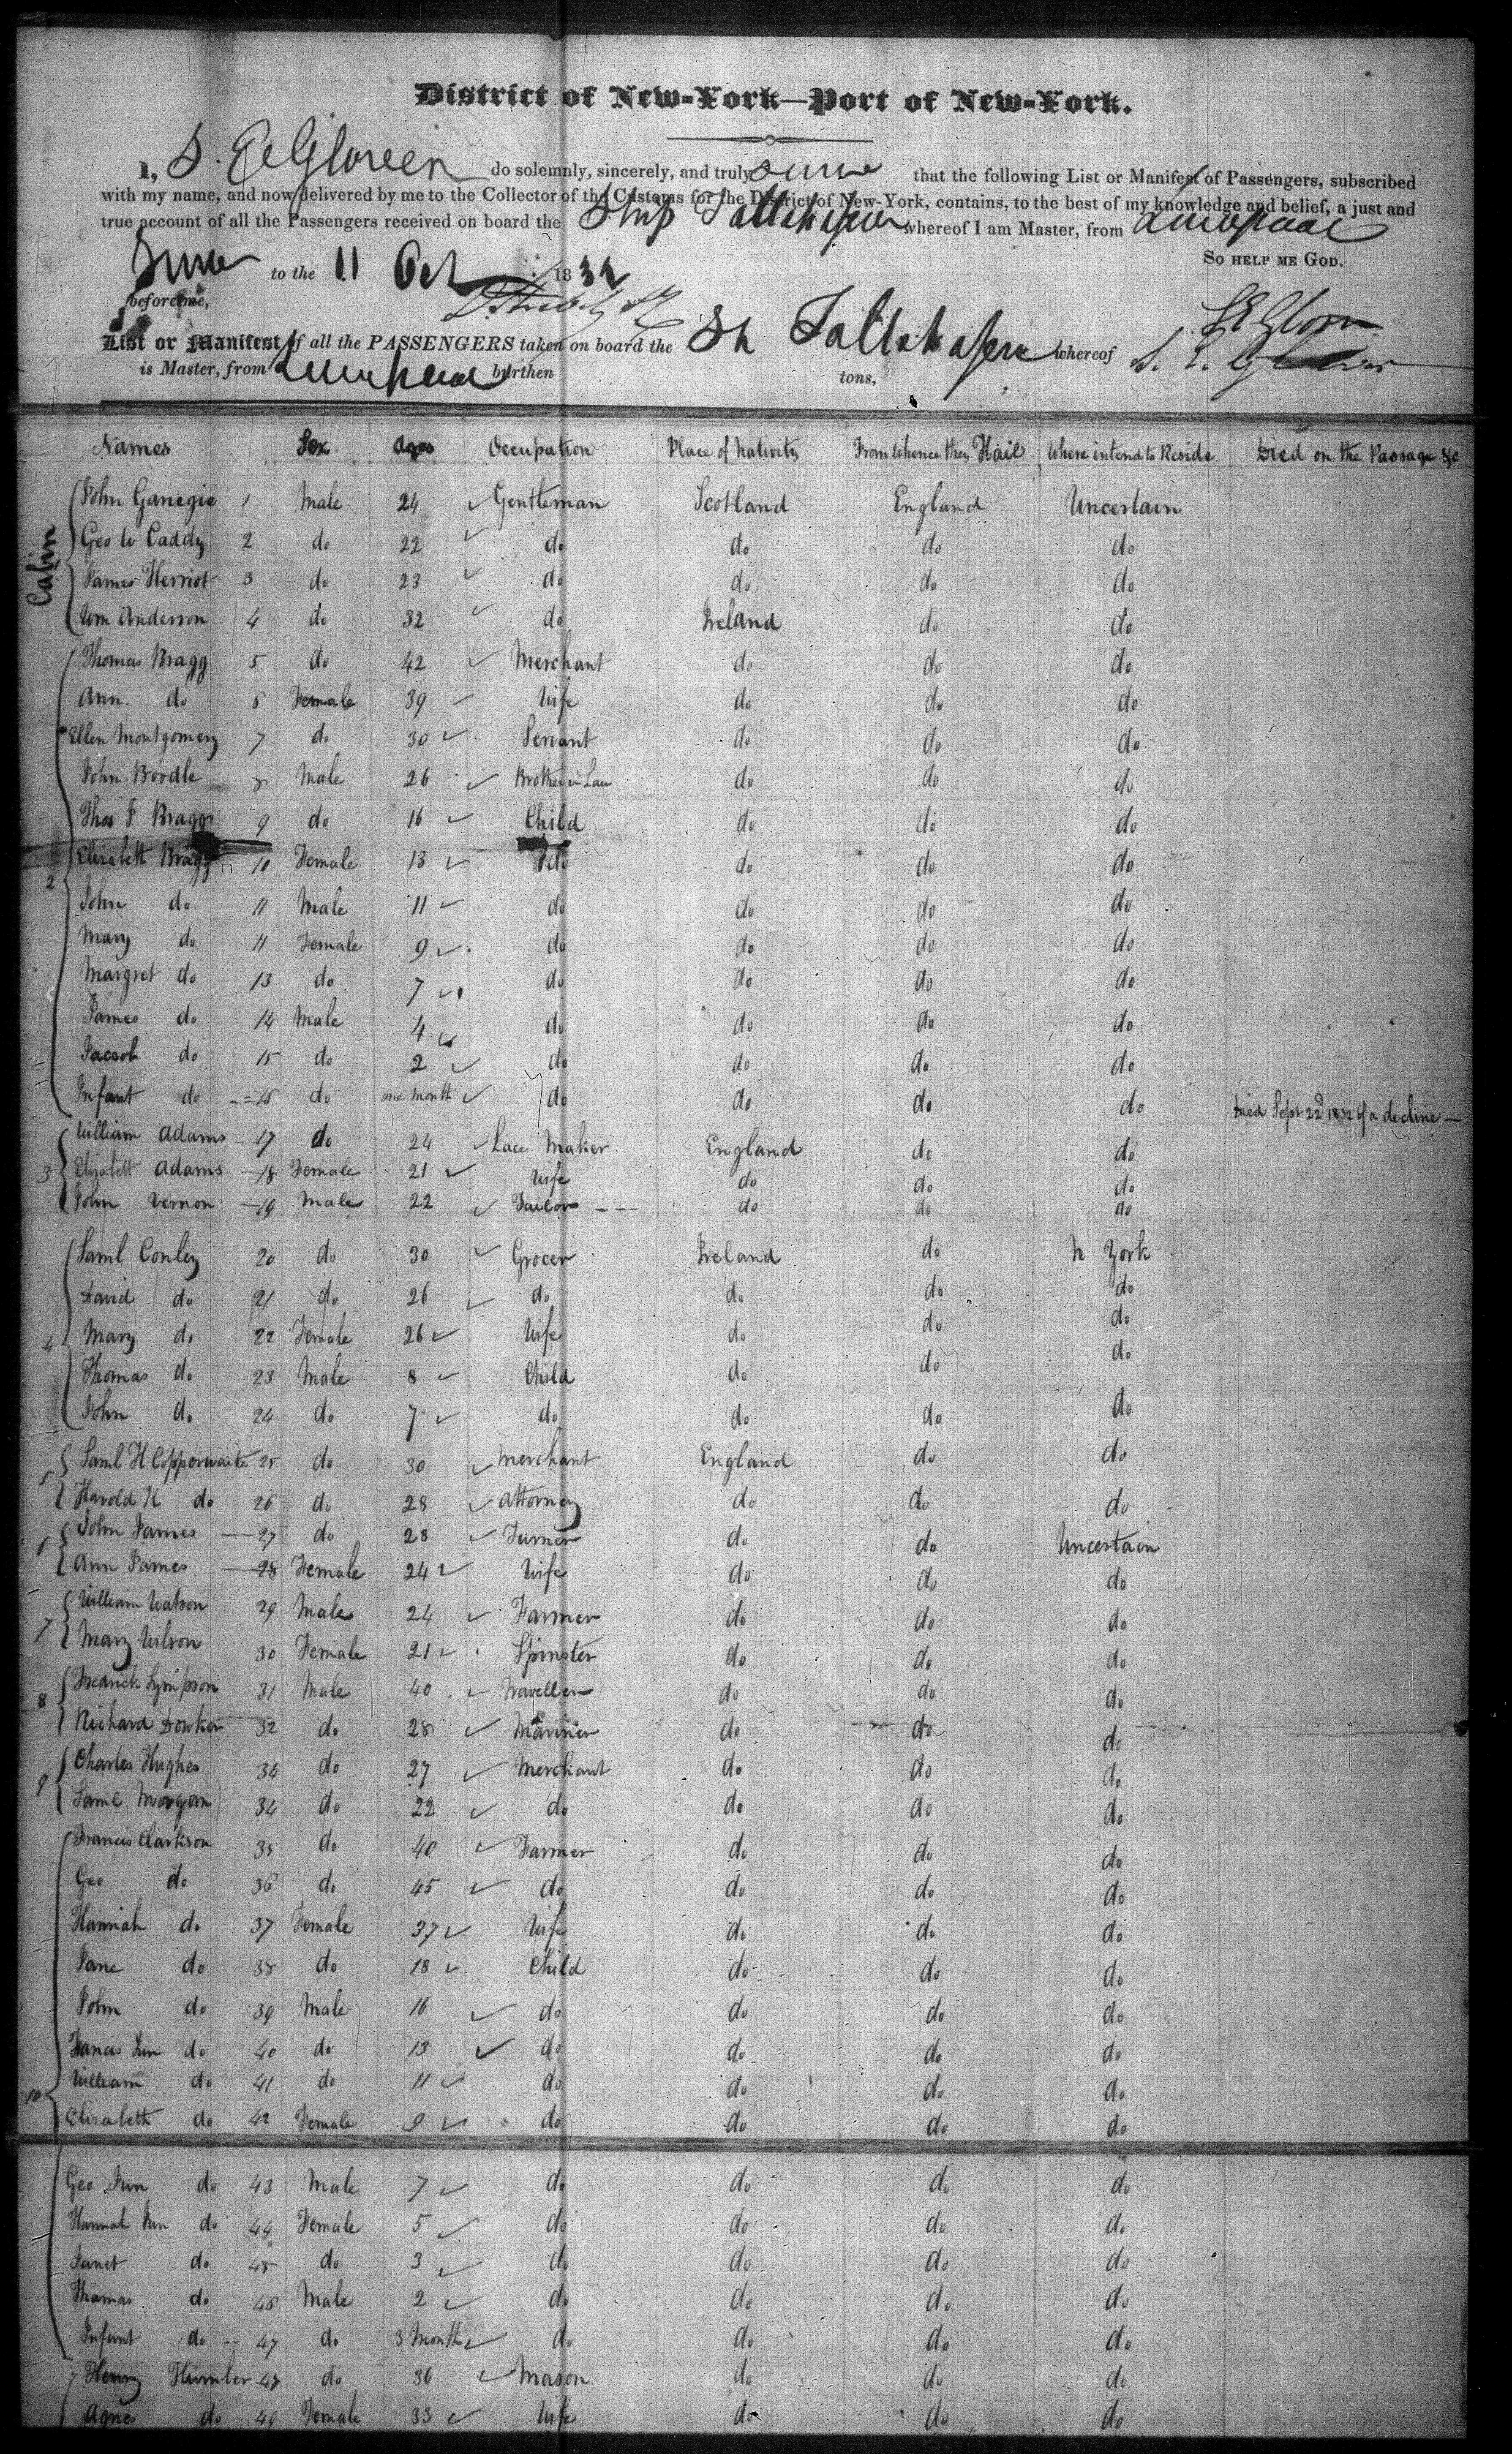 District of New-York—Port of New-York.
I, S. E. Glover do solemnly, sincerely, and truly swear that the following List or Manifest of Passengers, subscribed
with my name, and now delivered by me to the Collector of the Customs for the District of New-York, contains, to the best of my knowledge and belief, a just and
true account of all the Passengers received on board the Ship Tallahassee whereof I am Master, from Liverpool
So help me God.
to the 11 Oct 1832
before me,
List or Manifest of all the PASSENGERS taken on board the Sh Tallahassee whereof S. E. Glover
is Master, from Liverpool burthen tons,
Names Sex Ages Occupation Place of Nativity From Whence they Hail Where intend to Reside Died on the Passage &c
Cabin
John Ganegie 1 Male 24 Gentleman Scotland England Uncertain
Geo W Caddy 2 do 22 do do do do
James Herriot 3 do 23 do do do do
Wm Anderson 4 do 32 do Ireland do do
Thomas Bragg 5 do 42 Merchant do do do
Ann do 6 Female 39 Wife do do do
Ellen Montgomery 7 do 30 Servant do do do
John Boodle 8 Male 26 Brother in Law do do do
Thos J Bragg 9 do 16 Child do do do
Elizabeth Bragg 10 Female 13 do do do do
2
John do 11 Male 11 do do do do
Mary do 11 Female 9 do do do do
Margret do 13 do 7 do do do do
James do 14 Male 4 do do do do
Jacob do 15 do 2 do do do do
Infant do 16 do one month do do do do Died Sept 22d 1832 of a decline
William Adams 17 do 24 Lace Maker England do do
3 Elizabeth Adams 18 Female 21 Wife do do do
John Vernon 19 Male 22 Tailor do do do
Saml Conley 20 do 30 Grocer Ireland do N York
David do 21 do 26 do do do do
4 Mary do 22 Female 26 Wife do do do
Thomas do 23 Male 8 Child do do do
John do 24 do 7 do do do do
Saml H Copperwaite 25 do 30 Merchant England do do
5 Harold K do 26 do 28 Attorney do do do
John James 27 do 28 Turner do do Uncertain
6 Ann James 28 Female 24 Wife do do do
William Watson 29 Male 24 Farmer do do do
7 Mary Wilson 30 Female 21 Spinster do do do
8 Fredrick Sympson 31 Male 40 Traveller do do do
Richard Dowker 32 do 28 Mariner do do do
Charles Hughes 34 do 27 Merchant do do do
9 Saml Morgan 34 do 22 do do do do
Francis Clarkson 35 do 40 Farmer do do do
Geo do 36 do 45 do do do do
Hannah do 37 Female 37 Wife do do do
Jane do 38 do 18 Child do do do
John do 39 Male 16 do do do do
Francis Jun do 40 do 13 do do do do
William do 41 do 11 do do do do
10 Elizabeth do 42 Female 9 do do do do
Geo Jun do 43 Male 7 do do do do
Hannah Jun do 44 Female 5 do do do do
Janet do 45 do 3 do do do do
Thomas do 46 Male 2 do do do do
Infant do 47 do 3 Months do do do do
Henry Himber 48 do 36 Mason do do do
Agnes do 49 Female 33 Wife do do do